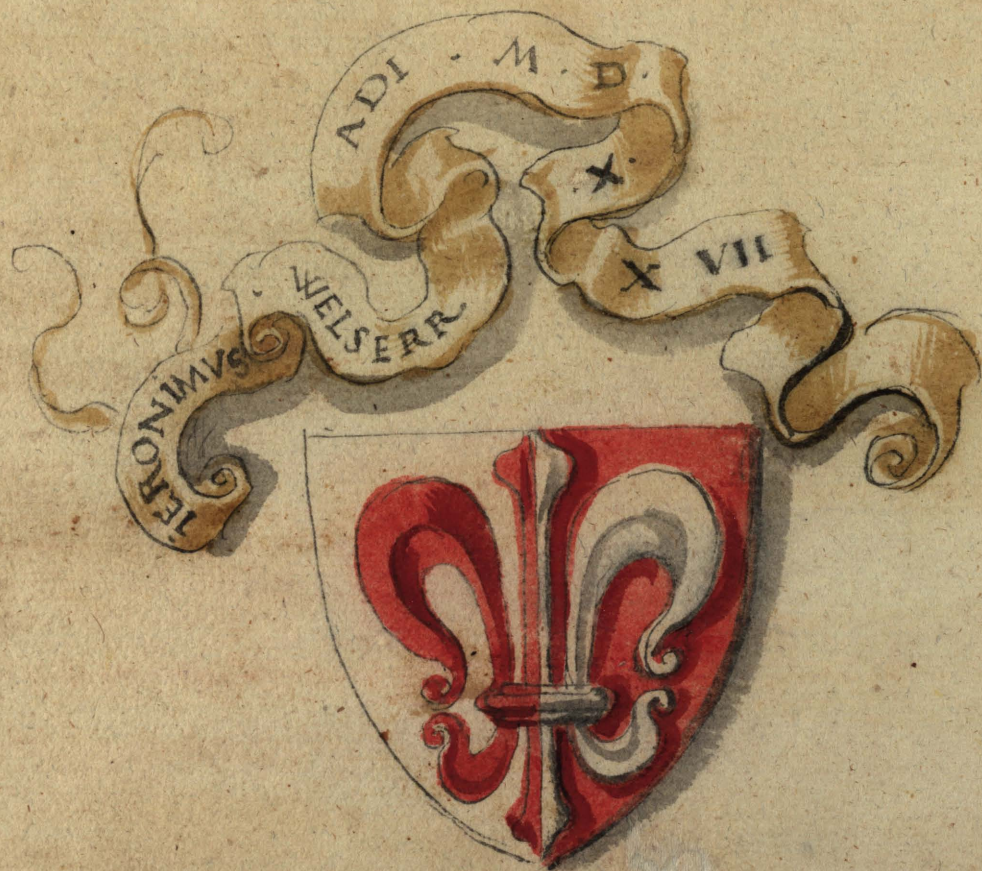 IERONIMVS · WELSERR
ADI · M · D · X · X VII